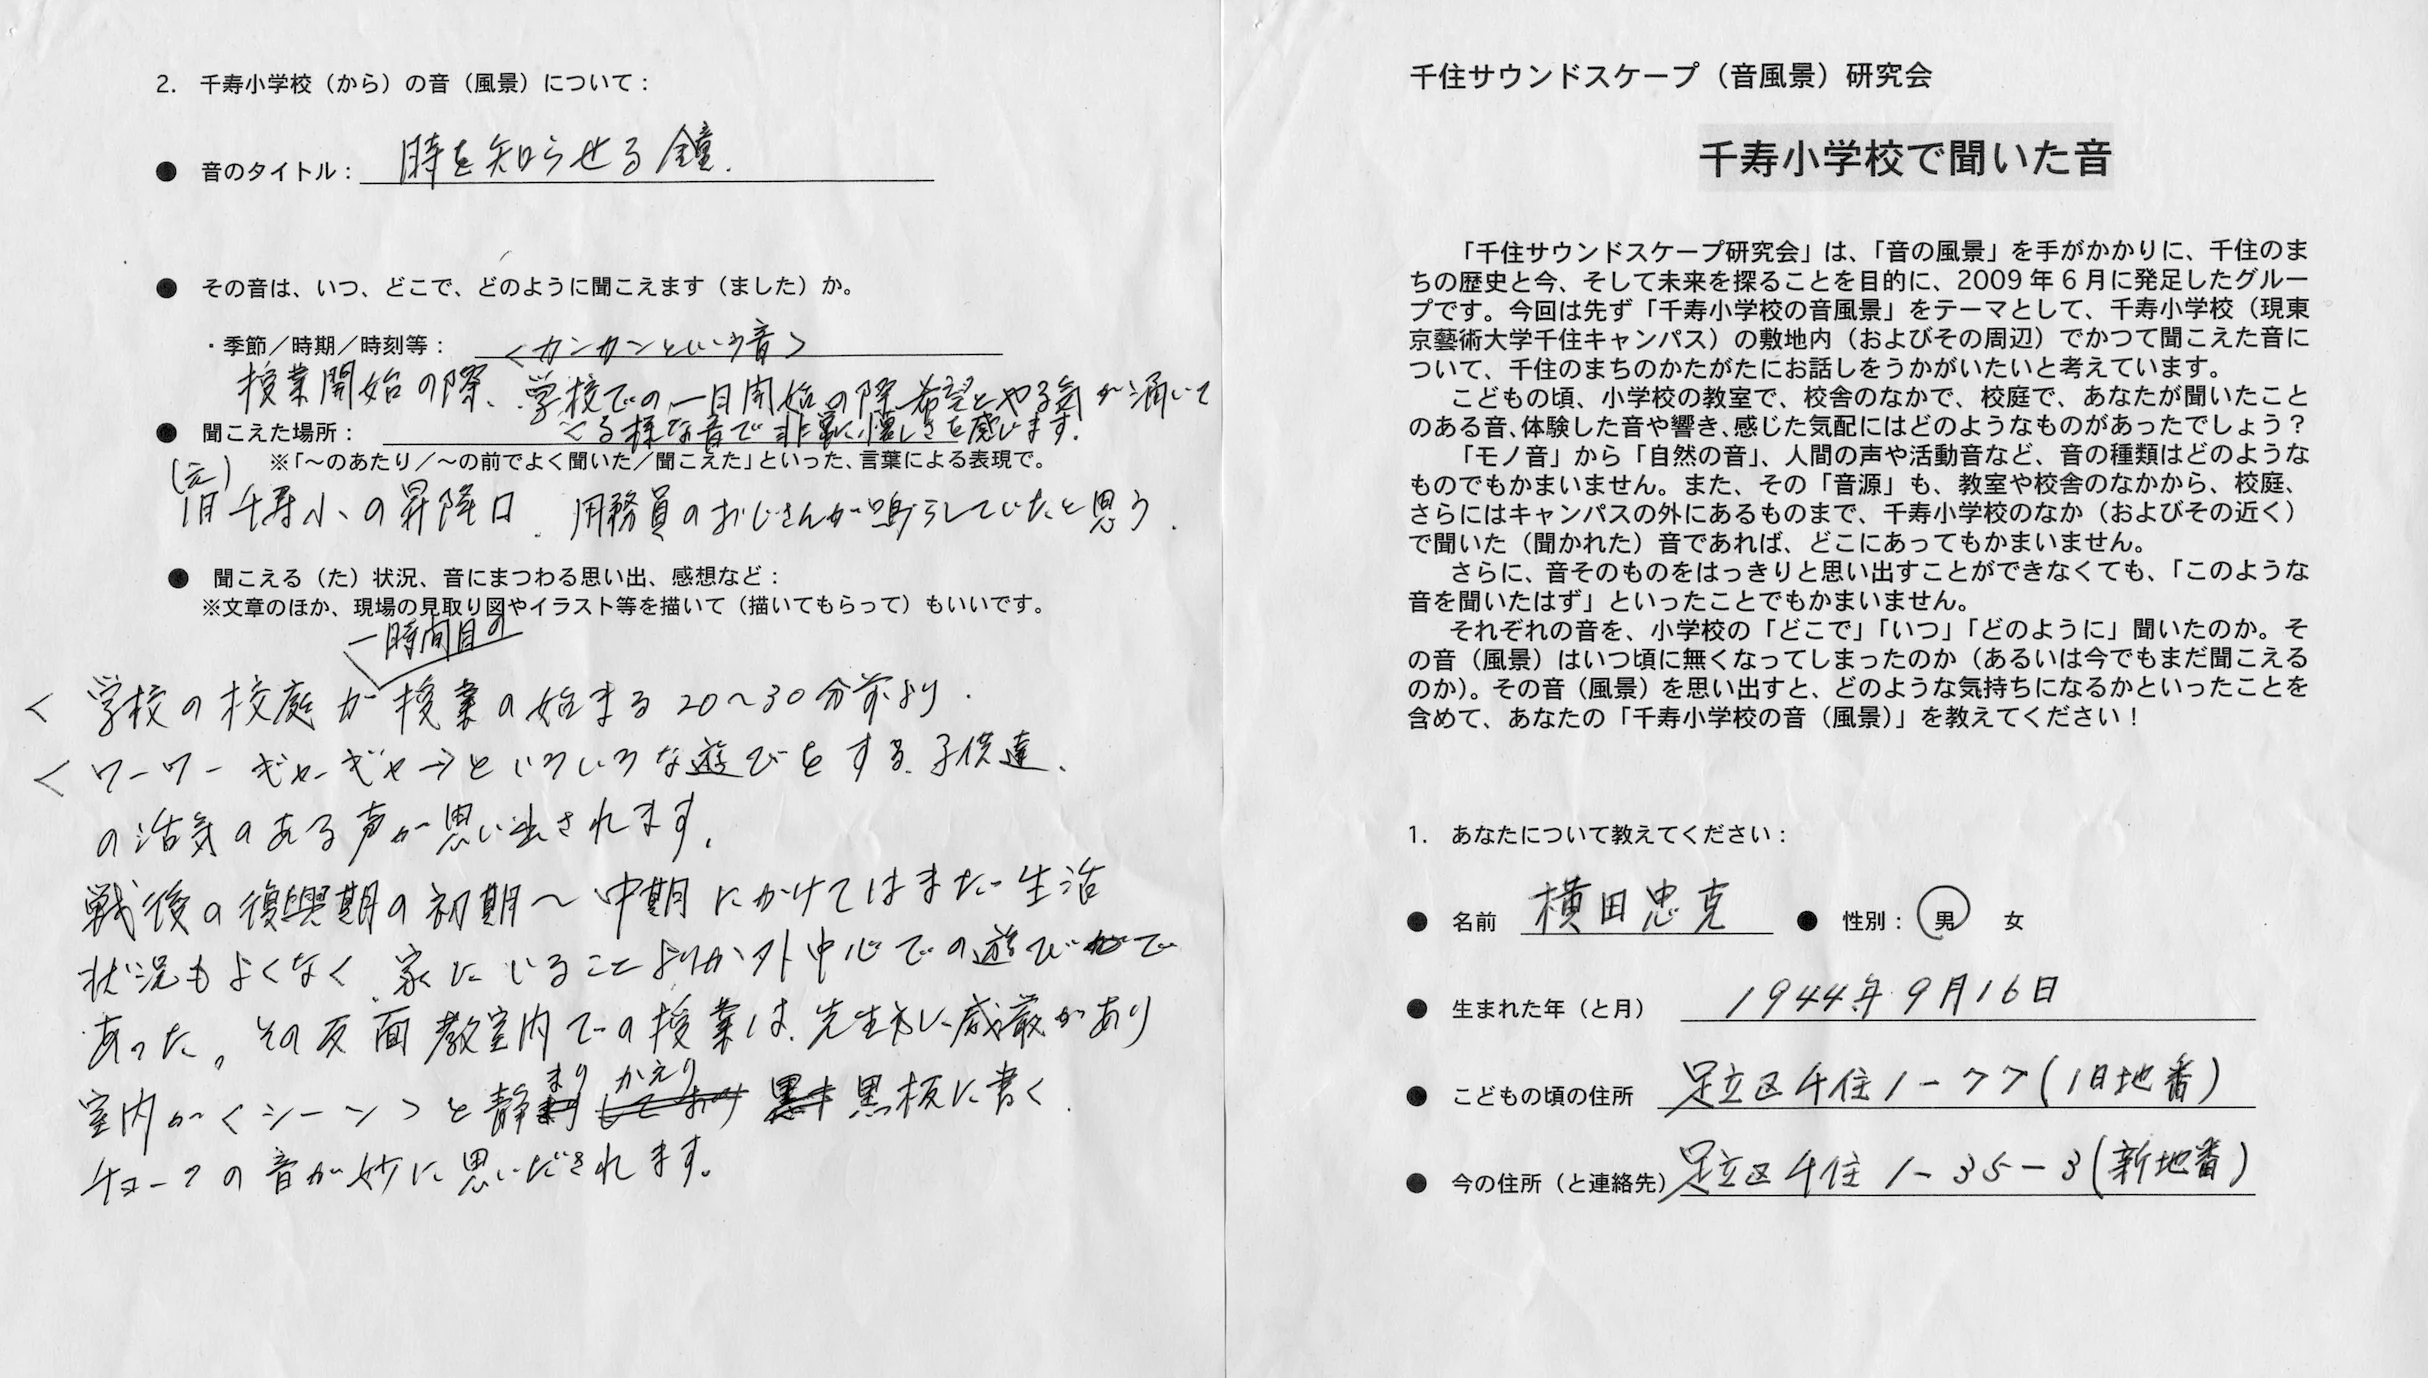 千住サウンドスケープ（音風景）研究会
千寿小学校で聞いた音
「千住サウンドスケープ研究会」は、「音の風景」を手がかかりに、千住のま
ちの歴史と今、そして未来を探ることを目的に、2009年6月に発足したグルー
プです。今回は先ず「千寿小学校の音風景」をテーマとして、千寿小学校（現東
京藝術大学千住キャンパス）の敷地内（およびその周辺）でかつて聞こえた音に
ついて、千住のまちのかたがたにお話しをうかがいたいと考えています。
こどもの頃、小学校の教室で、校舎のなかで、校庭で、あなたが聞いたこと
のある音、体験した音や響き、感じた気配にはどのようなものがあったでしょう？
「モノ音」から「自然の音」、人間の声や活動音など、音の種類はどのような
ものでもかまいません。また、その「音源」も、教室や校舎のなかから、校庭、
さらにはキャンパスの外にあるものまで、千寿小学校のなか（およびその近く）
で聞いた（聞かれた）音であれば、どこにあってもかまいません。
さらに、音そのものをはっきりと思い出すことができなくても、「このような
音を聞いたはず」といったことでもかまいません。
それぞれの音を、小学校の「どこで」「いつ」「どのように」聞いたのか。そ
の音（風景）はいつ頃に無くなってしまったのか（あるいは今でもまだ聞こえる
のか）。その音（風景）を思い出すと、どのような気持ちになるかといったことを
含めて、あなたの「千寿小学校の音（風景）」を教えてください！
1. あなたについて教えてください：
● 名前 横田忠克 ● 性別： 男 女
● 生まれた年（と月） 1944年9月16日
● こどもの頃の住所 足立区千住1-77(旧地番)
● 今の住所（と連絡先） 足立区千住1-35-3(新地番)
2. 千寿小学校（から）の音（風景）について：
● 音のタイトル： 時を知らせる鐘.
● その音は、いつ、どこで、どのように聞こえます（ました）か。
・季節／時期／時刻等： <カンカンという音>
授業開始の際、学校での一日開始の際希望とやる気が涌いて
くる様な音で非常に懐しさを感じます.
● 聞こえた場所：
※「〜のあたり／〜の前でよく聞いた／聞こえた」といった、言葉による表現で。
(元)
旧千寿小の昇降口. 用務員のおじさんが鳴らしていたと思う.
● 聞こえる（た）状況、音にまつわる思い出、感想など：
※文章のほか、現場の見取り図やイラスト等を描いて（描いてもらって）もいいです。
一時間目の
< 学校の校庭が授業の始まる20〜30分前より.
< ワーワーギャーギャーといろいろな遊びをする子供達.
の活気のある声が思い出されます.
戦後の復興期の初期〜中期にかけてはまだ生活
状況もよくなく、家にいることよりか外中心での遊びで
あった。その反面教室内での授業は、先生も威厳があり
まり かえり
室内が<シーン>と静 黒板に書く
チョークの音が妙に思いだされます。